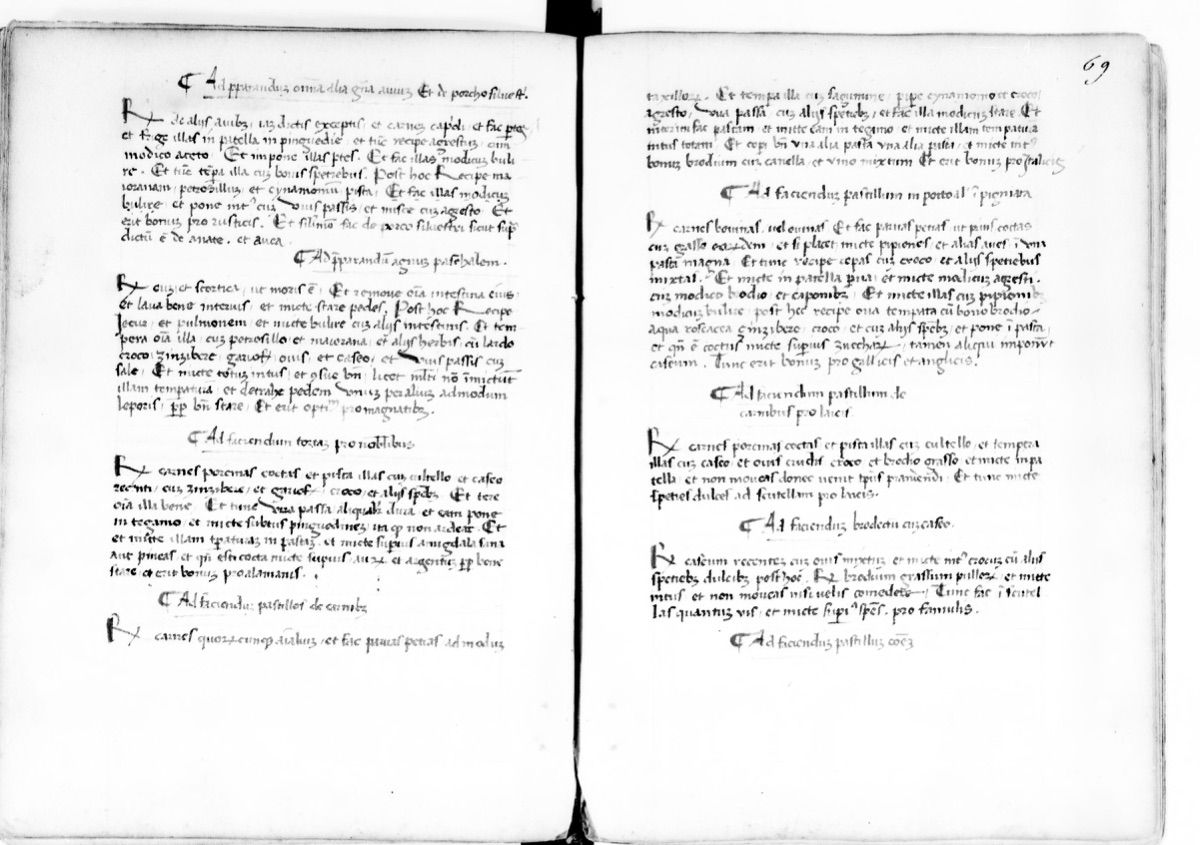 Ad pparandu᷒ omia alia gna auiu᷒ Et de porcho silue
Rx de alijs auibz, ia᷒ dictis exceptis, et carnes capoli, et fac ptes
et frige illas in patella in pinguedie, et tuc recipe agrestu᷒, cum
modico aceto, Et impone illas ptes, Et fac illas modicu᷒ buli
re. Et tuc tepa illa cu᷒ bonis spetiebus, Post hoc Recipe ma
ioranam, petrosillu᷒, et cynamomu᷒ pista, Et fac illas modicu᷒
bulire et pone int cu᷒ Vuis passis, et misce cu᷒ agresto, Et
erit bonus pro rusticis. Et silimo fac de porco silvestri sicut sup
dictu᷒ e de anate, et auca.
Ad pparandu᷒ agnus paschalem.
Rx eu᷒ et scortica, ut moris e, Et remoue oia intestina eius
et laua bene interius, et micte stare pedes, Post hoc Recipe
Iecur, et pulmonem et micte bulire cu᷒ alijs intestinis, Et tem
pera oia illa, cu᷒ petrosillo et maiorana, et alijs herbis cu᷒ lardo
croco, zinzibere, gariof, ouis, et caseo, et Vuis passis cu᷒
sale, Et micte totu᷒ intus, et 9sue bn, licet mlti no imictut
illam tempatura, et detrahe pedem Vnius per alius admodum
leporis, pp bn stare, Et erit opti pro magnatibz.
Ad faciendum tortas pro nobilibus
Rx carnes porcinas coctas et pista illas cu᷒ cultello et caseo
recenti, cu᷒ zinzibere, et gariof, croco, et alijs spebz, Et tere
oia illa bene, Et tunc Vna passa aliqual dura, et eam pone
in tegamo, et micte subtus pinguedinez, ita q non ardeat, Et
et micte illam tpatura᷒ in pasta᷒, et micte supius amigdala sana
aut pineas et qn esti cocta micte supius, auru᷒ et argentu᷒ pp bene
stare, et erit bonus pro alamanis.
Ad faciendu᷒ pastillos de carnibz
Rx carnes quorcunq aialiu᷒, et fac paruas petias ad modu᷒
69
taxillor. Et tempa illa cu᷒ sagimine, pipe cynamomo et croco
agresto, Vua passa cu᷒ alijs spetiebz, et fac illa modicu᷒ stare Et
interim fac pastam, et micte eam in tegamo et micte illam tempatura
intus totam, Et copi bn vna alia pasta vna alia pasta, et micte int
bonus brodium cu᷒ canella, et vino mixtum Et erit bonus pro Italicis
Ad faciendus pastillum in portoal i pignata
Rx carnes bouinas, uel ouinas, Et fac paruas petias, ut prius coctas
cu᷒ grasso eordem, et si placet micte pipiones, et alias aues, i vna
pasta magna, Et tunc recipe cepas cu᷒ croco et alijs spetiebus
mixtas, Et micte in patella pua, et micte modicus agresti,
cu᷒ modico brodio, et caponibz, Et micte illas cu᷒ pipionibz
modicu᷒ bulire, post hec recipe oua tempata cu᷒ bono brodio,
aqua rosacea zinzibere, croco, et cu᷒ alijs spebz, et pone i pasta,
et qn e coctus micte supius zuccharz, tamen aliqui imponut
caseum. Tunc erit bonus pro gallicis et anglicis.
Ad faciendum pastillum de
carnibus pro laicis
Rx carnes porcinas coctas et pista illas cu᷒ cultello, et tempera
illas cu᷒ caseo, et ouis crudis croco et brodio grasso, et micte in pa
tella, et non moueas donec veniet tpus prandendi, Et tunc micte
speties dulces ad scutellam pro laicis.
Ad faciendus brodectu᷒ cu᷒ caseo.
Rx caseum recentez cu᷒ ouis mixtus, et micte int crocus cu᷒ alijs
spetiebz dulcibz, post hoc, Rx brodium grassium pullorz, et micte
intus et non moueas nisi velis comedere, Tunc fac i scutel
las quantus vis, et micte supi spes, pro famulis.
Ad faciendu᷒ pastillu᷒ coez